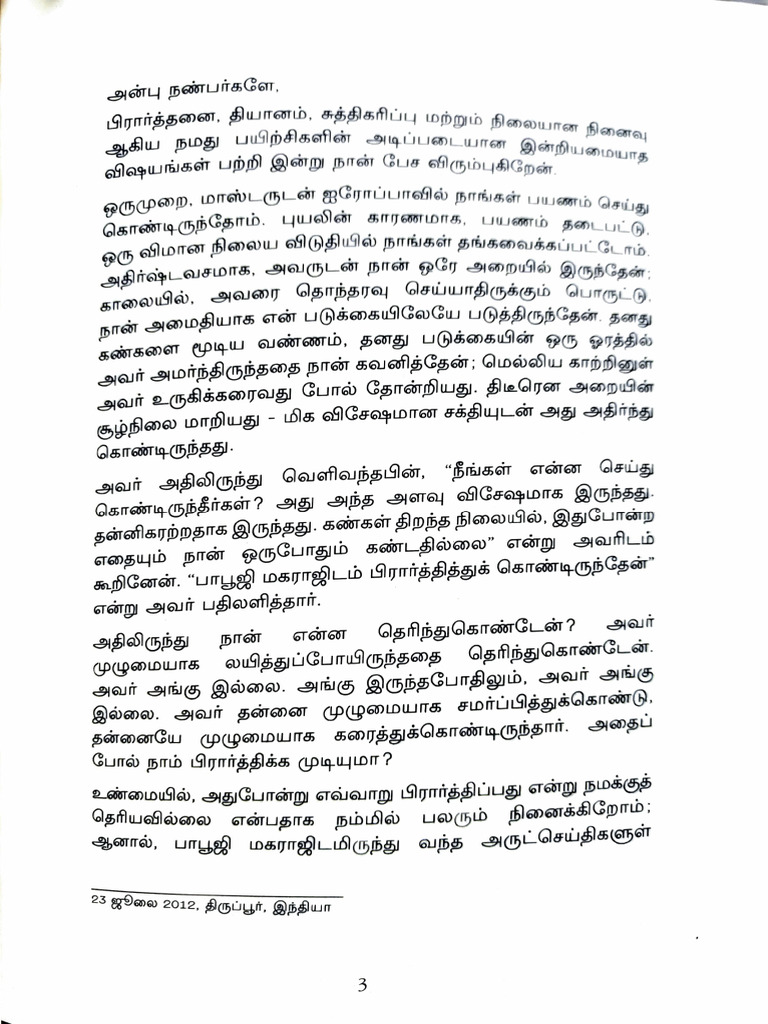 அன்பு நண்பர்களே,
பிரார்த்தனை, தியானம், சுத்திகரிப்பு மற்றும் நிலையான நினைவு
ஆகிய நமது பயிற்சிகளின் அடிப்படையான இன்றியமையாத
விஷயங்கள் பற்றி இன்று நான் பேச விரும்புகிறேன்.
ஒருமுறை, மாஸ்டருடன் ஐரோப்பாவில் நாங்கள் பயணம் செய்து
கொண்டிருந்தோம். புயலின் காரணமாக, பயணம் தடைபட்டு,
ஒரு விமான நிலைய விடுதியில் நாங்கள் தங்கவைக்கப்பட்டோம்.
அதிர்ஷ்டவசமாக, அவருடன் நான் ஒரே அறையில் இருந்தேன்;
காலையில், அவரை தொந்தரவு செய்யாதிருக்கும் பொருட்டு,
நான் அமைதியாக என் படுக்கையிலேயே படுத்திருந்தேன். தனது
கண்களை மூடிய வண்ணம், தனது படுக்கையின் ஒரு ஓரத்தில்
அவர் அமர்ந்திருந்ததை நான் கவனித்தேன்; மெல்லிய காற்றினுள்
அவர் உருகிக்கரைவது போல் தோன்றியது. திடீரென அறையின்
சூழ்நிலை மாறியது – மிக விசேஷமான சக்தியுடன் அது அதிர்ந்து
கொண்டிருந்தது.
அவர் அதிலிருந்து வெளிவந்தபின், “நீங்கள் என்ன செய்து
கொண்டிருந்தீர்கள்? அது அந்த அளவு விசேஷமாக இருந்தது.
தன்னிகரற்றதாக இருந்தது. கண்கள் திறந்த நிலையில், இதுபோன்ற
எதையும் நான் ஒருபோதும் கண்டதில்லை” என்று அவரிடம்
கூறினேன். “பாபூஜி மகராஜிடம் பிரார்த்தித்துக் கொண்டிருந்தேன்”
என்று அவர் பதிலளித்தார்.
அதிலிருந்து நான் என்ன தெரிந்துகொண்டேன்? அவர்
முழுமையாக லயித்துப்போயிருந்ததை தெரிந்துகொண்டேன்.
அவர் அங்கு இல்லை. அங்கு இருந்தபோதிலும், அவர் அங்கு
இல்லை. அவர் தன்னை முழுமையாக சமர்ப்பித்துக்கொண்டு,
தன்னையே முழுமையாக கரைத்துக்கொண்டிருந்தார். அதைப்
போல் நாம் பிரார்த்திக்க முடியுமா?
உண்மையில், அதுபோன்று எவ்வாறு பிரார்த்திப்பது என்று நமக்குத்
தெரியவில்லை என்பதாக நம்மில் பலரும் நினைக்கிறோம்;
ஆனால், பாபூஜி மகராஜிடமிருந்து வந்த அருட்செய்திகளுள்
23 ஜூலை 2012, திருப்பூர், இந்தியா
3